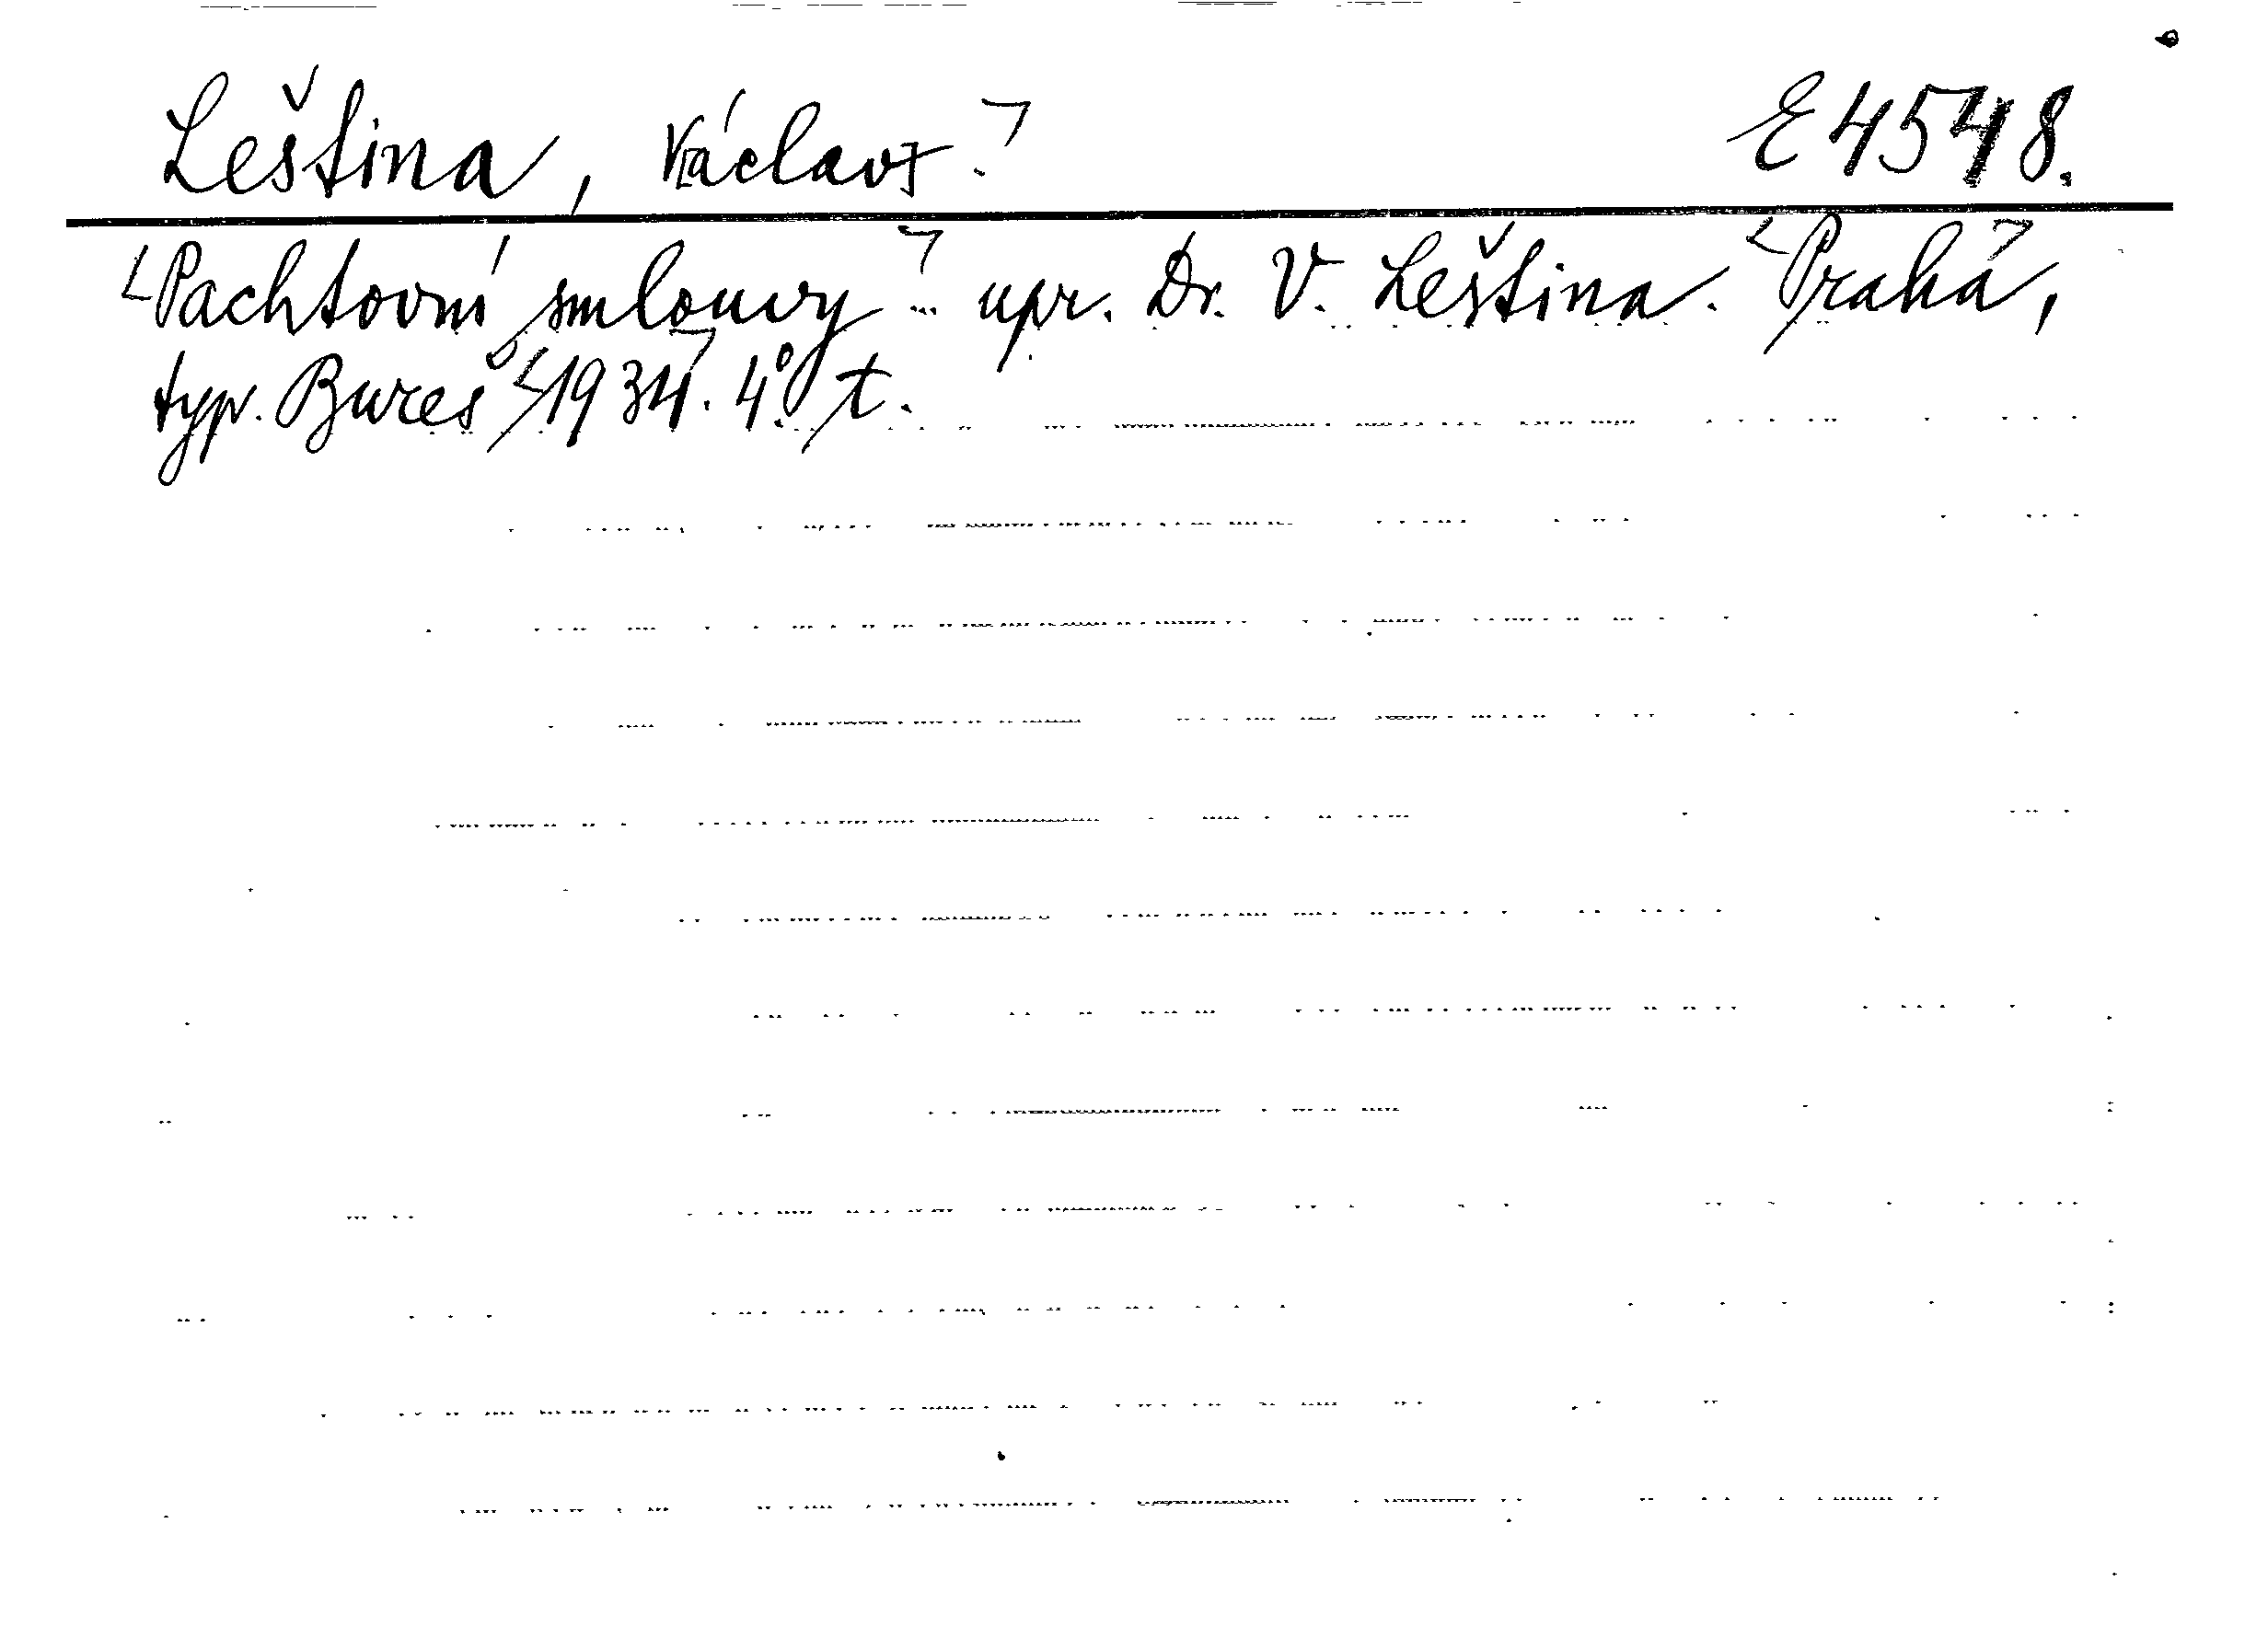 Leština, V[áclav].                    E 4548.
Pachtovní smlouvy ... upr. Dr. V. Leština. Praha,
typ. Bureš 1934. 4.° t.